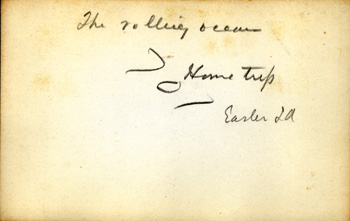 The rolling ocean
Home trip
Easter Id